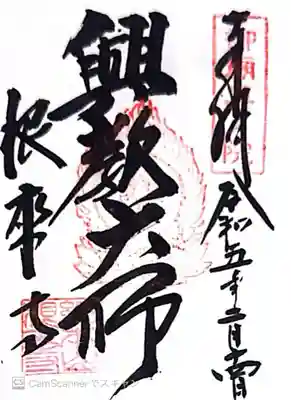 奉拝
令和五年二月
興教大師
根来寺
CS CamScannerでスキ